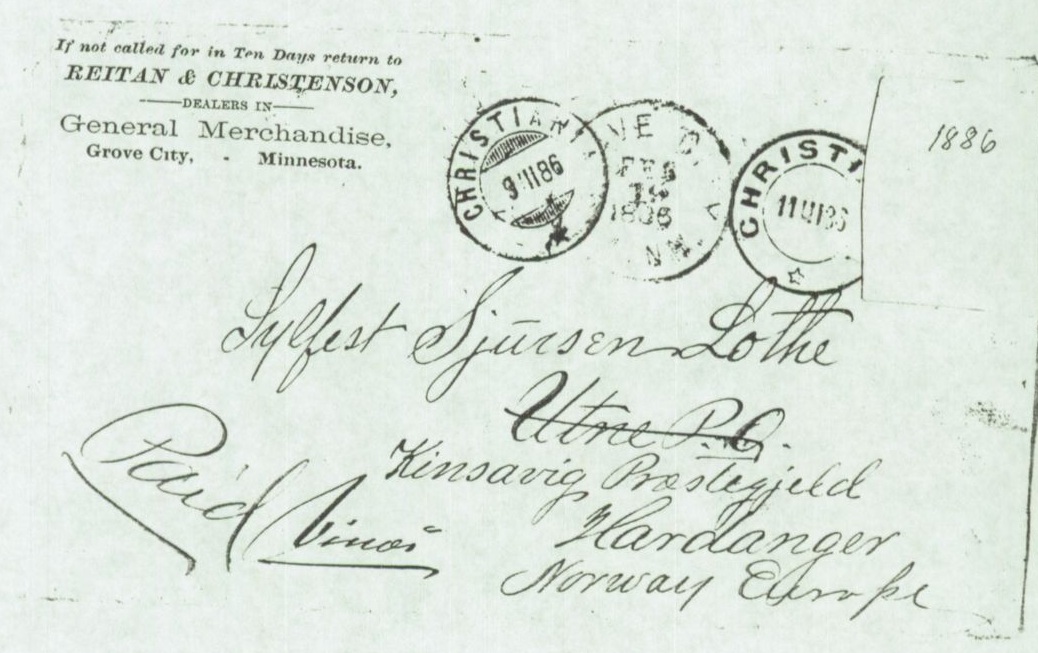 If not called for in Ten Days return to
REITAN & CHRISTENSON,
DEALERS IN
General Merchandise,
Grove City, - Minnesota.
CHRISTIANIA
9 III 86
VE C
FEB
1886
NN.
CHRISTI
11 III 86
1886
Sylfest Sjursen Lothe
Utne P.O.
Kinsavig Præstegjeld
Hardanger
Norway Europe
Paid